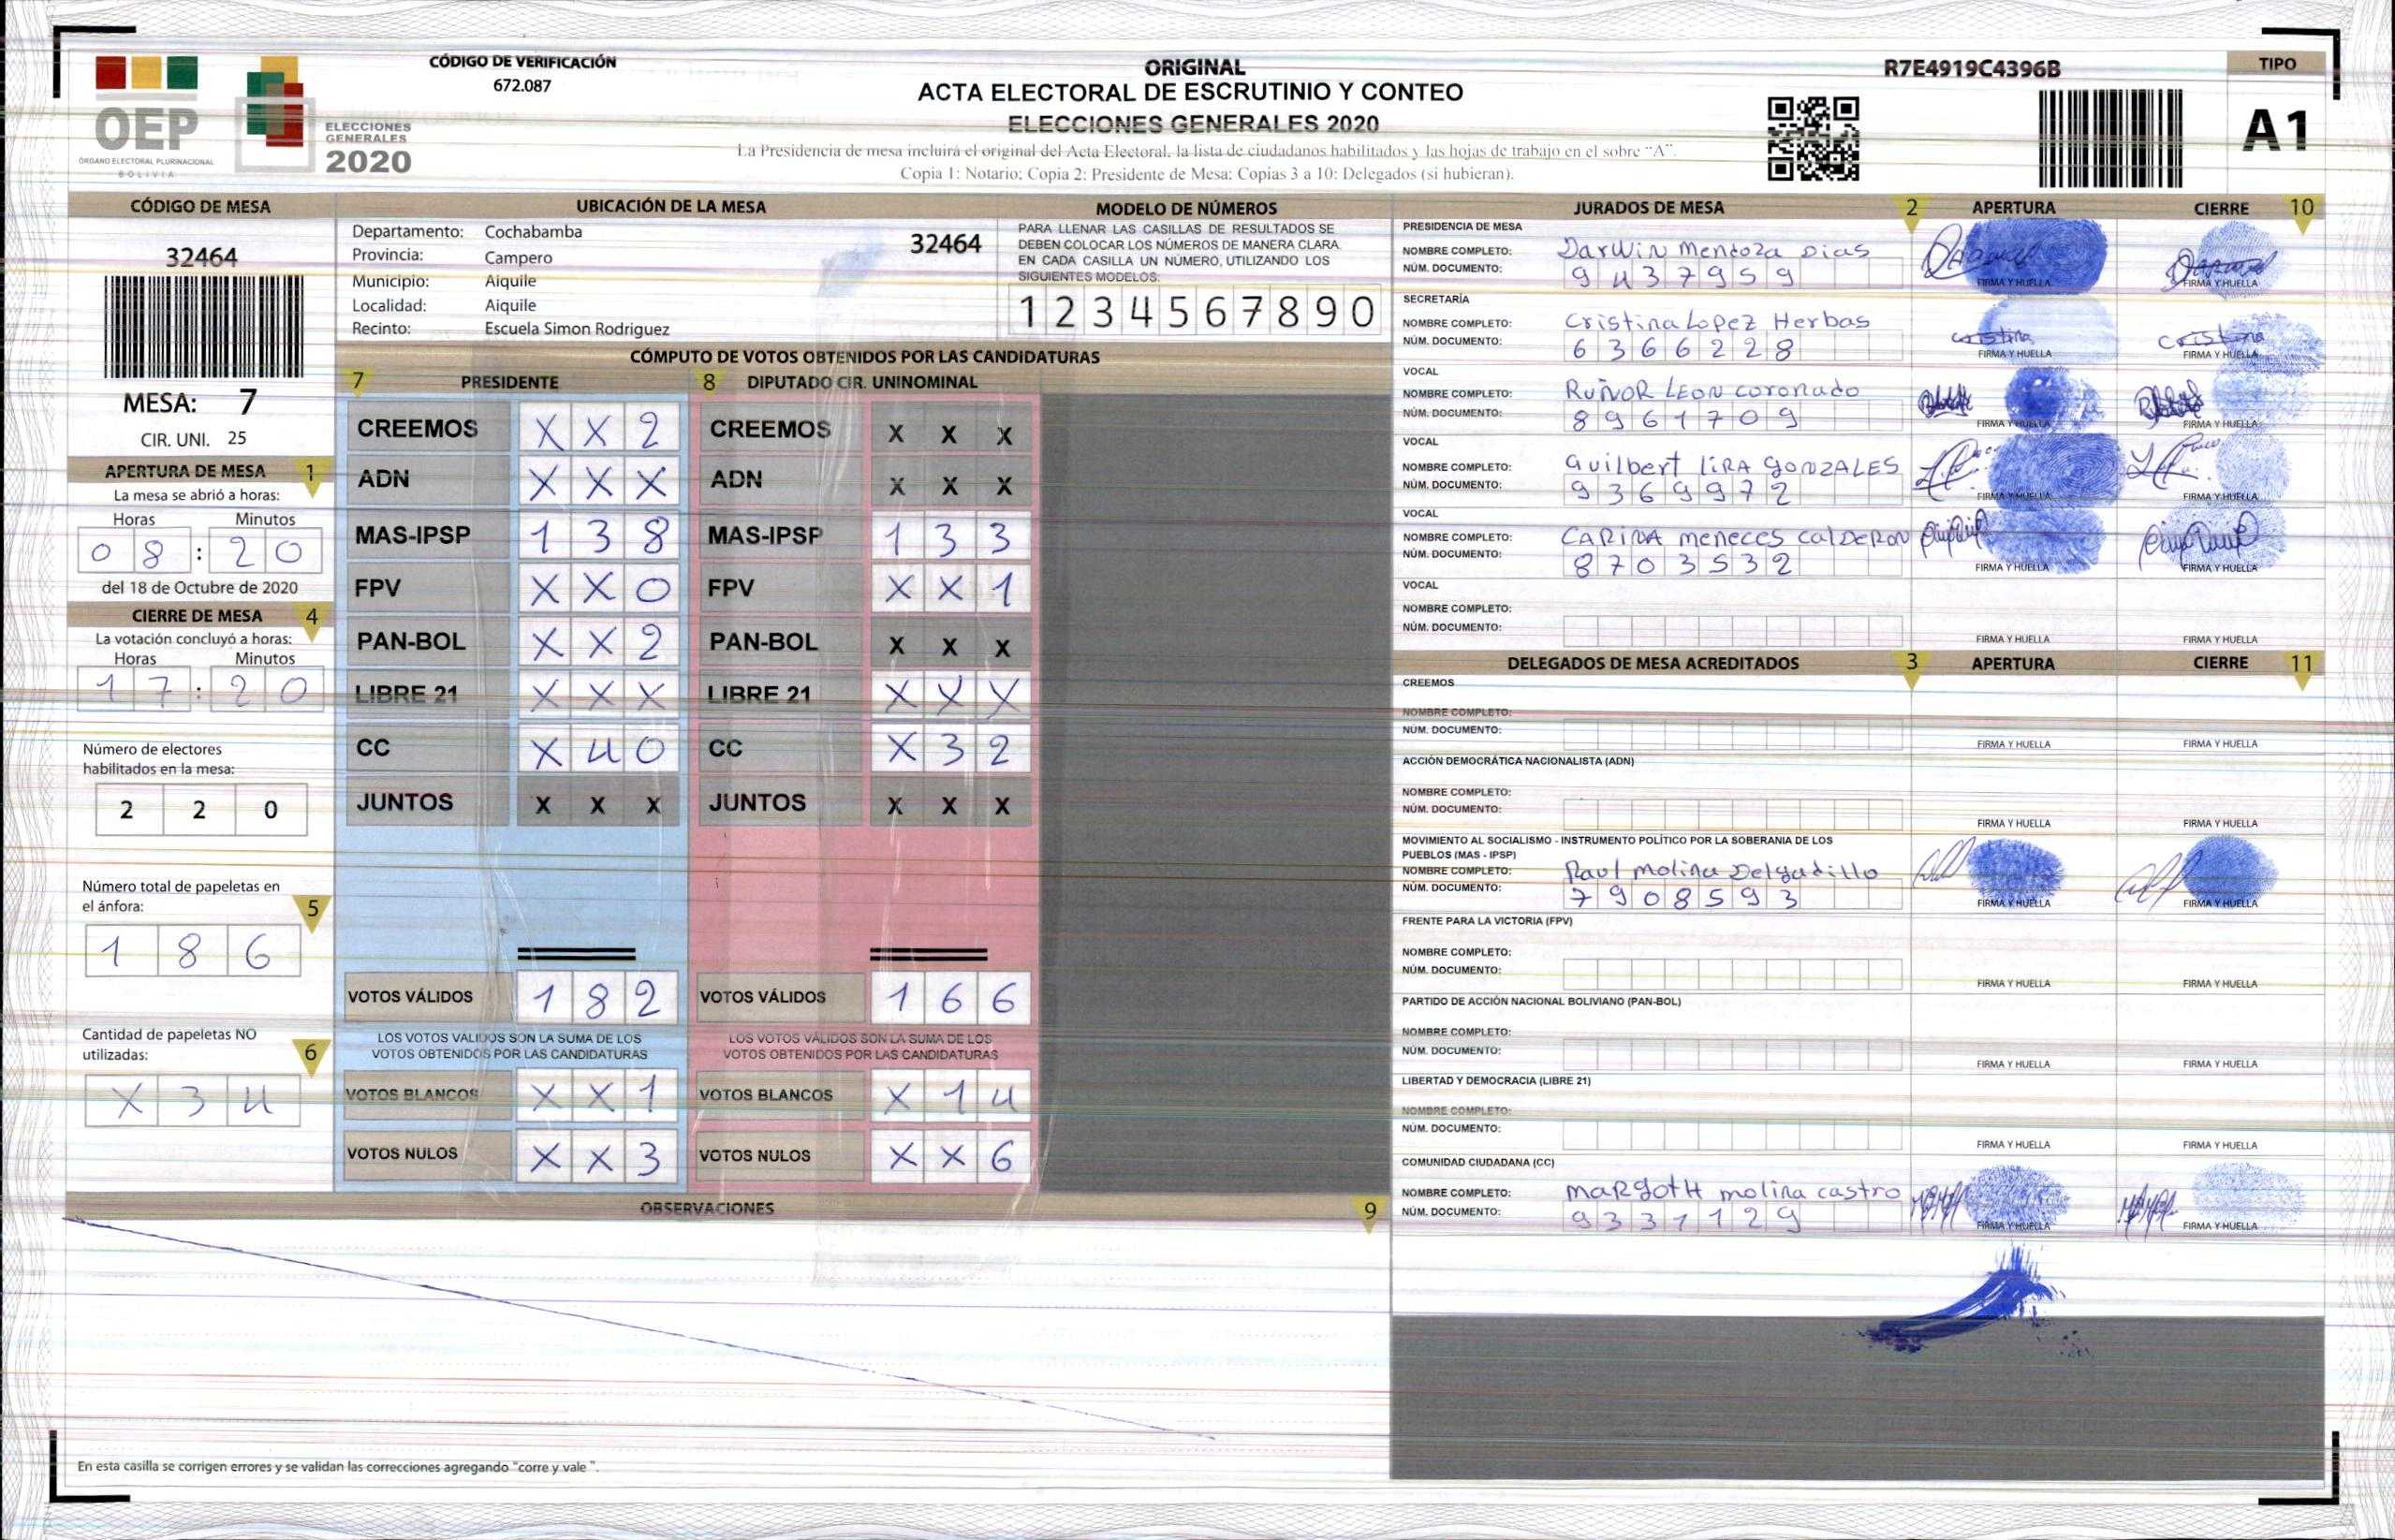 CÓDIGO DE VERIFICACIÓN
672.087
ORIGINAL
ACTA ELECTORAL DE ESCRUTINIO Y CONTEO
ELECCIONES GENERALES 2020
La Presidencia de mesa incluirá el original del Acta Electoral, la lista de ciudadanos habilitados y las hojas de trabajo en el sobre "A".
Copia 1: Notario; Copia 2: Presidente de Mesa; Copias 3 a 10: Delegados (si hubieran).
R7E4919C4396B
TIPO
A1
OEP
ÓRGANO ELECTORAL PLURINACIONAL
BOLIVIA
ELECCIONES
GENERALES
2020
CÓDIGO DE MESA
32464
MESA: 7
CIR. UNI. 25
APERTURA DE MESA 1
La mesa se abrió a horas:
Horas Minutos
0 8 : 2 0
del 18 de Octubre de 2020
CIERRE DE MESA 4
La votación concluyó a horas:
Horas Minutos
1 7 : 2 0
Número de electores
habilitados en la mesa:
2 2 0
Número total de papeletas en
el ánfora: 5
1 8 6
Cantidad de papeletas NO
utilizadas: 6
X 3 4
UBICACIÓN DE LA MESA
Departamento: Cochabamba
Provincia: Campero
Municipio: Aiquile
Localidad: Aiquile
Recinto: Escuela Simon Rodriguez
32464
MODELO DE NÚMEROS
PARA LLENAR LAS CASILLAS DE RESULTADOS SE
DEBEN COLOCAR LOS NÚMEROS DE MANERA CLARA.
EN CADA CASILLA UN NÚMERO, UTILIZANDO LOS
SIGUIENTES MODELOS:
1 2 3 4 5 6 7 8 9 0
CÓMPUTO DE VOTOS OBTENIDOS POR LAS CANDIDATURAS
7 PRESIDENTE 8 DIPUTADO CIR. UNINOMINAL
CREEMOS X X 2 CREEMOS X X X
ADN X X X ADN X X X
MAS-IPSP 1 3 8 MAS-IPSP 1 3 3
FPV X X 0 FPV X X 1
PAN-BOL X X 2 PAN-BOL X X X
LIBRE 21 X X X LIBRE 21 X X X
CC X 4 0 CC X 3 2
JUNTOS X X X JUNTOS X X X
VOTOS VÁLIDOS 1 8 2 VOTOS VÁLIDOS 1 6 6
LOS VOTOS VÁLIDOS SON LA SUMA DE LOS LOS VOTOS VÁLIDOS SON LA SUMA DE LOS
VOTOS OBTENIDOS POR LAS CANDIDATURAS VOTOS OBTENIDOS POR LAS CANDIDATURAS
VOTOS BLANCOS X X 1 VOTOS BLANCOS X 1 4
VOTOS NULOS X X 3 VOTOS NULOS X X 6
OBSERVACIONES 9
En esta casilla se corrigen errores y se validan las correcciones agregando "corre y vale ".
JURADOS DE MESA 2 APERTURA CIERRE 10
PRESIDENCIA DE MESA
NOMBRE COMPLETO: Darwin Mendoza Dias
NÚM. DOCUMENTO: 9 4 3 7 9 5 9
FIRMA Y HUELLA FIRMA Y HUELLA
SECRETARÍA
NOMBRE COMPLETO: Cristina Lopez Herbas
NÚM. DOCUMENTO: 6 3 6 6 2 2 8
FIRMA Y HUELLA FIRMA Y HUELLA
VOCAL
NOMBRE COMPLETO: RUÑOR LEON coronado
NÚM. DOCUMENTO: 8 9 6 1 7 0 9
FIRMA Y HUELLA FIRMA Y HUELLA
VOCAL
NOMBRE COMPLETO: Guilbert LiRA GONZALES
NÚM. DOCUMENTO: 9 3 6 9 9 7 2
FIRMA Y HUELLA FIRMA Y HUELLA
VOCAL
NOMBRE COMPLETO: CARINA meneces CalDERON
NÚM. DOCUMENTO: 8 7 0 3 5 3 2
FIRMA Y HUELLA FIRMA Y HUELLA
VOCAL
NOMBRE COMPLETO:
NÚM. DOCUMENTO:
FIRMA Y HUELLA FIRMA Y HUELLA
DELEGADOS DE MESA ACREDITADOS 3 APERTURA CIERRE 11
CREEMOS
NOMBRE COMPLETO:
NÚM. DOCUMENTO:
FIRMA Y HUELLA FIRMA Y HUELLA
ACCIÓN DEMOCRÁTICA NACIONALISTA (ADN)
NOMBRE COMPLETO:
NÚM. DOCUMENTO:
FIRMA Y HUELLA FIRMA Y HUELLA
MOVIMIENTO AL SOCIALISMO - INSTRUMENTO POLÍTICO POR LA SOBERANIA DE LOS
PUEBLOS (MAS - IPSP)
NOMBRE COMPLETO: Raul molina Delgadillo
NÚM. DOCUMENTO: 7 9 0 8 5 9 3
FIRMA Y HUELLA FIRMA Y HUELLA
FRENTE PARA LA VICTORIA (FPV)
NOMBRE COMPLETO:
NÚM. DOCUMENTO:
FIRMA Y HUELLA FIRMA Y HUELLA
PARTIDO DE ACCIÓN NACIONAL BOLIVIANO (PAN-BOL)
NOMBRE COMPLETO:
NÚM. DOCUMENTO:
FIRMA Y HUELLA FIRMA Y HUELLA
LIBERTAD Y DEMOCRACIA (LIBRE 21)
NOMBRE COMPLETO:
NÚM. DOCUMENTO:
FIRMA Y HUELLA FIRMA Y HUELLA
COMUNIDAD CIUDADANA (CC)
NOMBRE COMPLETO: maRgotH molina castro
NÚM. DOCUMENTO: 9 3 3 1 1 2 9
FIRMA Y HUELLA FIRMA Y HUELLA